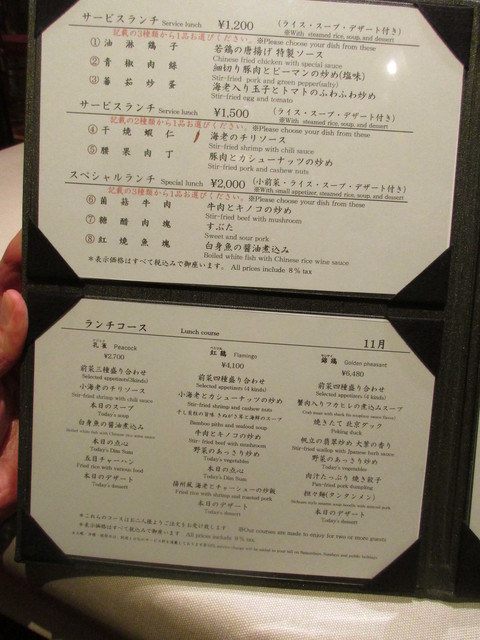 サービスランチ Service lunch ¥1,200 (ライス・スープ・デザート付き)
記載の3種類から1品お選びください。※Please choose your dish from these ※With steamed rice, soup, and dessert
① 油淋鶏子 若鶏の唐揚げ 特製ソース
Chinese fried chicken with special sauce
② 青椒肉絲 細切り豚肉とピーマンの炒め(塩味)
Stir-fried pork and green pepper(salty)
③ 蕃茄炒蛋 海老入り玉子とトマトのふわふわ炒め
Stir-fried egg and tomato
サービスランチ Service lunch ¥1,500 (ライス・スープ・デザート付き)
記載の2種類から1品お選びください。※Please choose your dish from these ※With steamed rice, soup, and dessert
④ 干焼蝦仁 海老のチリソース
Stir-fried shrimp with chili sauce
⑤ 腰果肉丁 豚肉とカシューナッツの炒め
Stir-fried pork and cashew nuts
スペシャルランチ Special lunch ¥2,000 (小前菜・ライス・スープ・デザート付き)
記載の3種類から1品お選びください。※Please choose your dish from these ※With small appetizer, steamed rice, soup, and dessert
⑥ 菌菇牛肉 牛肉とキノコの炒め
Stir-fried beef with mushroom
⑦ 糖醋肉塊 すぶた
Sweet and sour pork
⑧ 紅焼魚塊 白身魚の醤油煮込み
Boiled white fish with Chinese rice wine sauce
＊表示価格はすべて税込みで御座います。 All prices include 8%tax
ランチコース Lunch course 11月
孔雀 Peacock
¥2,700
前菜三種盛り合わせ
Selected appetizers(3kinds)
小海老のチリソース
Stir-fried shrimp with chili sauce
本日のスープ
Today's soup
白身魚の醤油煮込み
Boiled white fish with Chinese rice wine sauce
本日の点心
Today's Dim Sum
五目チャーハン
Fried rice with various hard
本日のデザート
Today's dessert
紅鶴 Flamingo
¥4,100
前菜四種盛り合わせ
Selected appetizers (4 kinds)
小海老とカシューナッツの炒め
Stir-fried shrimp and cashew nuts
Bamboo piths and seafood soup
牛肉とキノコの炒め
Stir-fried beef with mushroom
野菜のあっさり炒め
Today's vegetables
本日の点心
Today's Dim Sum
揚州風 海老とチャーシューの炒飯
Fried rice with shrimp and roasted pork
本日のデザート
Today's dessert
錦鶏 Golden pheasant
¥6,480
前菜四種盛り合わせ
Selected appetizers (4 kinds)
蟹肉入りフカヒレの煮込みスープ
焼きたて 北京ダック
Peking duck
帆立の翡翠炒め 大葉の香り
Stir-fried scallop with Japanese herb sauce
野菜のあっさり炒め
Today's vegetables
肉汁たっぷり 焼き餃子
Pan-fried pork dumpling
担々麺(タンタンメン)
本日のデザート
Today's dessert
＊これらのコースはお二人様よりご注文をお受け致します ※Our courses are made to enjoy for two or more guests
＊表示価格はすべて税込みで御座います。 All prices include 8%tax